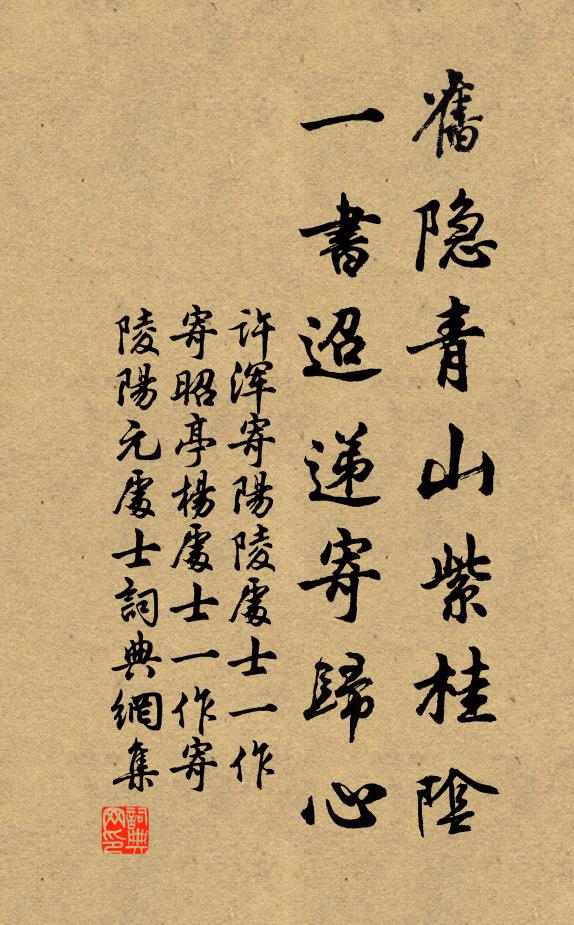 舊隐青山紫桂陰
一書迢递寄歸心
許渾寄陽陵處士一作
寄昭亭楊處士一作寄
陵陽元處士詞典網集
詞典网印